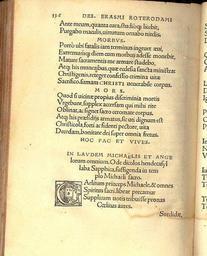 136 DES. ERASMI ROTERODAMI
Ante meum, quanta cura, studioque licebit,
Purgabo maculis, uiuimum ornabo nouellis
MORBVS.
Porrò ubi fatalis iam terminus ingruet
Extremusque diem cum morbus adesse monebit,
Mature sacramentis me armare studebo,
Atque his muneribus, quae ecclesia sancta ministrat
Christigenis, reteget confessio crimina uita
Sacrifico, sumam CHRISTI uenerabile corpus.
MORS.
Quod si uicinae propius discrimina mortis
Vrgebunt, supplex accersam qui mihi rite
Oblinat, ac signet sacro ceromate corpus.
Atque his praesidiis armatus, sicuti dignum est
Christicola, forti ac fidenti pectore, uita
Decedam, bonitate dei super omnia fretus.
HOC FAC ET VIVES.
IN LAVDEM MICHAELIS ET ANGE
lorum omnium, Ode dicolos hendecasyl
laba Sapphica, suffigenda in tem
plo Michaeli sacro.
Caelitum princeps Michael, & omnes
Spiritus sacri, liberae precamur
Supplicum uotis tribuisse pronas
Caelitus aures.
Sordidae